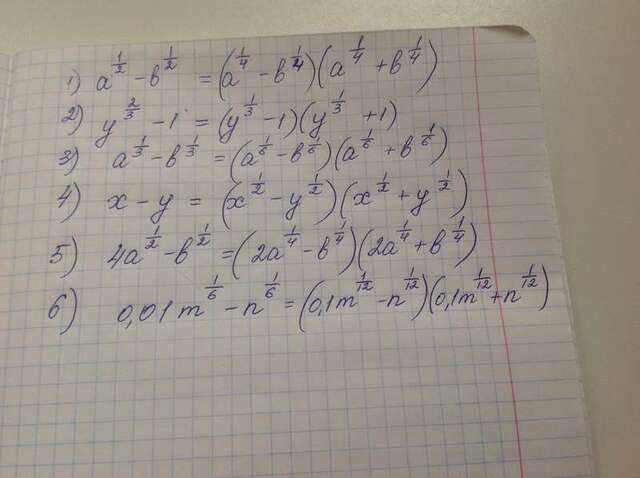 1) a^{1/2} - b^{1/2} = (a^{1/4} - b^{1/4})(a^{1/4} + b^{1/4})
2) y^{2/3} - 1 = (y^{1/3} - 1)(y^{1/3} + 1)
3) a^{1/3} - b^{1/3} = (a^{1/6} - b^{1/6})(a^{1/6} + b^{1/6})
4) x - y = (x^{1/2} - y^{1/2})(x^{1/2} + y^{1/2})
5) 4a^{1/2} - b^{1/2} = (2a^{1/4} - b^{1/4})(2a^{1/4} + b^{1/4})
6) 0,01m^{1/6} - n^{1/6} = (0,1m^{1/12} - n^{1/12})(0,1m^{1/12} + n^{1/12})